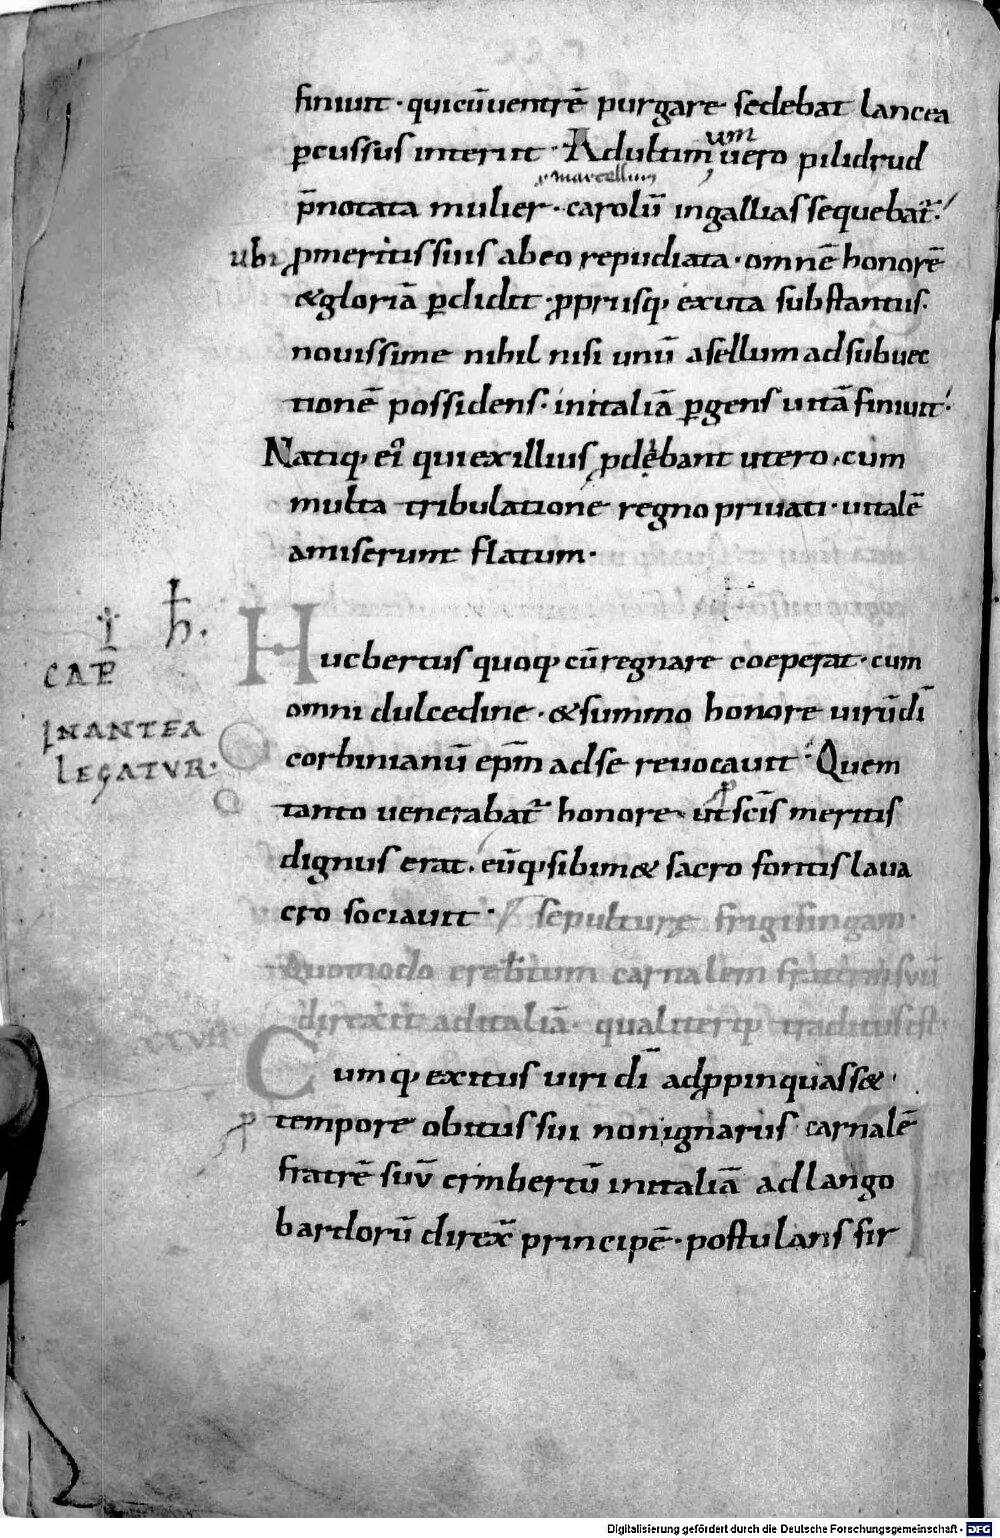 finiuit · quicū uentrē purgare sedebat lancea
p̱cussus interiit · Ad ultim uero pilidrud
um
marcellum
p̄notata mulier · carolū in gallias sequebat᷑ ·
ubi ꝓmeritis suis ab eo repudiata · omnē honorē
& gloriā ꝑdidit · ꝓpriisq; exuta substantiis ·
nouissime nihil nisi unū asellum ad subuec
tionē possidens · in italiā ꝑgens uitā finiuit ·
Natiq; ei᷑ qui ex illius ꝓdebant utero · cum
multa tribulatione regno priuati · uitalē
amiserunt flatum ·
h̄ ·
CAP
IN ANTEA
LEGATUR ·
Hucbertus quoq; cū regnare coeperat · cum
omni dulcedine · & summo honore uirū dī
corbinianū ep̄m ad se reuocauit · Quem
tanto uenerabat᷑ honore · ut sc̄is meritis
dignus erat · eūq; sibim& sacro fontis laua
cro sociauit · sepulturę frigisingam ·
Quomodo erebtum carnalem fratrem suū
direxit ad italiā · qualiterq; traditus est ·
Cumq; exitus uiri dī adꝓpinquass& ·
tempore obitus sui non ignarus · carnalē
fratrē suū erimbertū in italiā ad lango
bardorū direx̄ principē · postulans fir
Digitalisierung gefördert durch die Deutsche Forschungsgemeinschaft - DFG